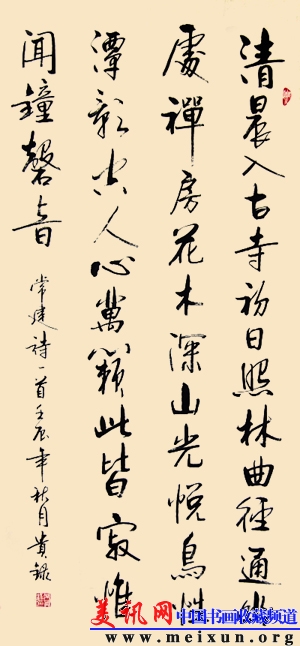 清晨入古寺初日照林曲徑通幽
處禪房花木深山光悅鳥性
潭影空人心萬籟此皆寂惟
聞鐘磬音
常建詩一首壬辰年秋月貴録
美讯网 中国书画收藏频道
www.meixun.org